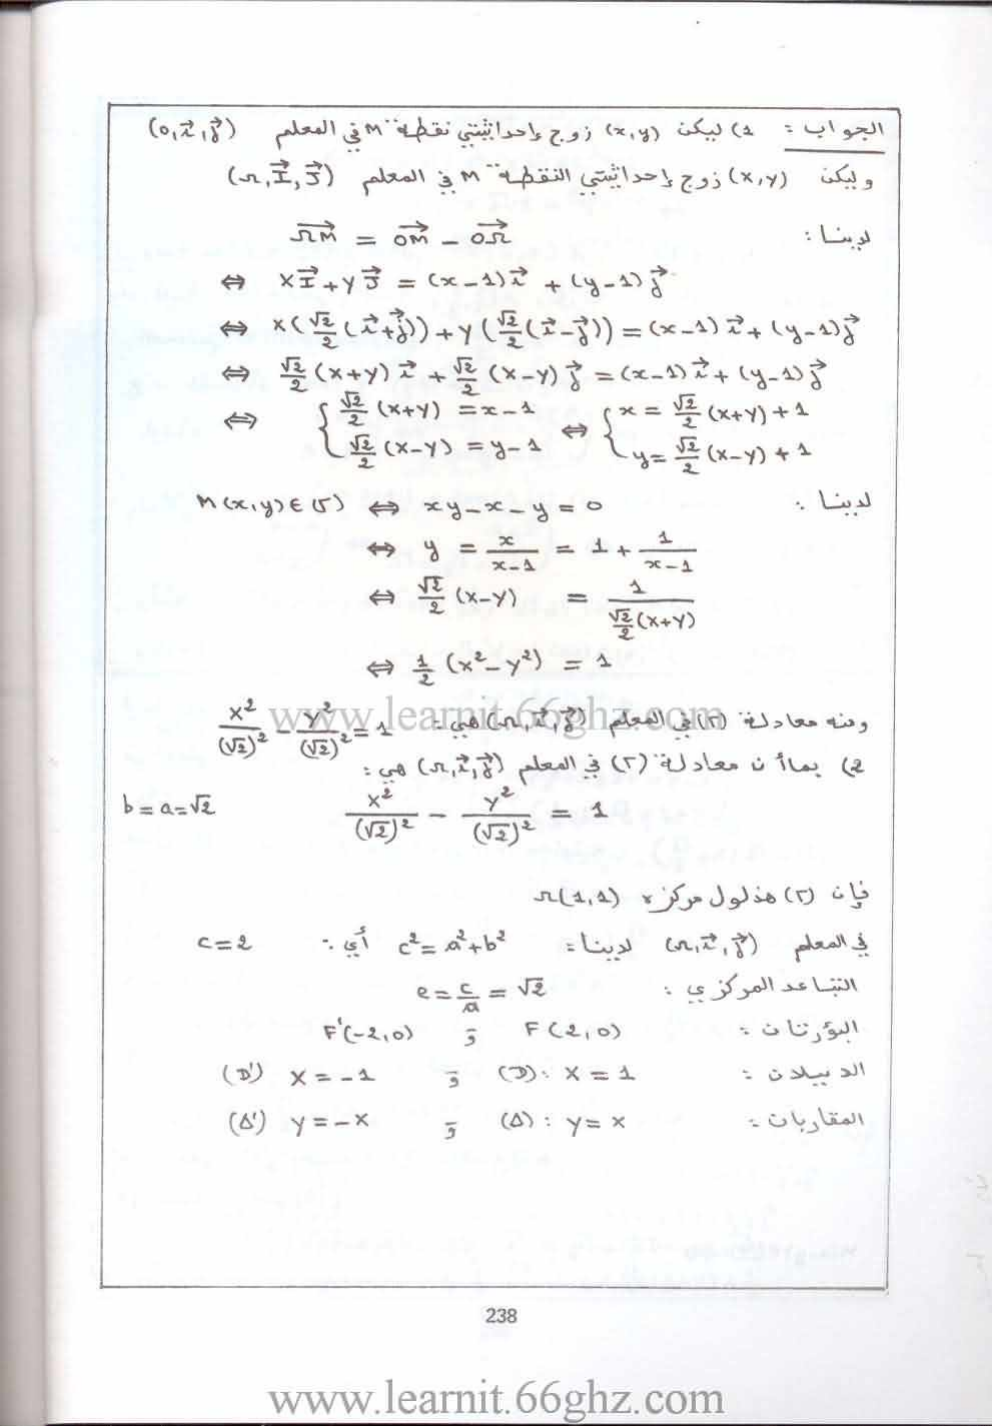 الجواب : 1) ليكن (x,y) زوج إحداثيتي نقطة M في المعلم (O,i⃗,j⃗)
وليكن (X,Y) زوج إحداثيتي النقطة M في المعلم (Ω,I⃗,J⃗)
لدينا : ΩM⃗ = OM⃗ − OΩ⃗
⇔ XI⃗ + YJ⃗ = (x−1)i⃗ + (y−1)j⃗
⇔ X(√2/2 (i⃗+j⃗)) + Y(√2/2 (i⃗−j⃗)) = (x−1)i⃗ + (y−1)j⃗
⇔ √2/2 (X+Y)i⃗ + √2/2 (X−Y)j⃗ = (x−1)i⃗ + (y−1)j⃗
⇔ { √2/2 (X+Y) = x−1 ⇔ { x = √2/2 (X+Y) + 1
√2/2 (X−Y) = y−1 y = √2/2 (X−Y) + 1
لدينا : M(x,y) ∈ (Γ) ⇔ xy−x−y = 0
⇔ y = x/(x−1) = 1 + 1/(x−1)
⇔ √2/2 (X−Y) = 1/(√2/2 (X+Y))
⇔ 1/2 (X²−Y²) = 1
ومنه معادلة (Γ) في المعلم (Ω,i⃗,j⃗) هي : X²/(√2)² − Y²/(√2)² = 1
2) بما أن معادلة (Γ) في المعلم (Ω,i⃗,j⃗) هي :
X²/(√2)² − Y²/(√2)² = 1 b = a = √2
فإن (Γ) هذلول مركزه Ω(1,1)
في المعلم (Ω,i⃗,j⃗) لدينا : c² = a²+b² أي : c = 2
التباعد المركزي : e = c/a = √2
البؤرتان : F(2,0) و F'(−2,0)
الدييلان : (D): X = 1 و X = −1 (D')
المقاربات : (Δ) : Y = X و Y = −X (Δ')
238
www.learnit.66ghz.com
www.learnit.66ghz.com